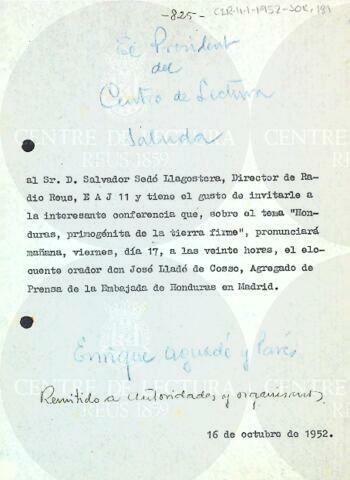 -825-
C2R-11-1-1952-SOR, 191
El President
del
Centro de Lectura
Saluda
CENTRE DE LECTURA
REUS 1859
al Sr. D. Salvador Sedó Llagostera, Director de Ra-
dio Reus, E A J 11 y tiene el gusto de invitarle a
la interesante conferencia que, sobre el tema "Hon-
duras, primogénita de la tierra firme", pronunciará
mañana, viernes, día 17, a las veinte horas, el elo-
cuente orador don José Lladó de Cosso, Agregado de
Prensa de la Embajada de Honduras en Madrid.
Enrique Aguadé y Parés
Remitido a autoridades y organismos,
CENTRE DE LECTURA
REUS 1859
16 de octubre de 1952.